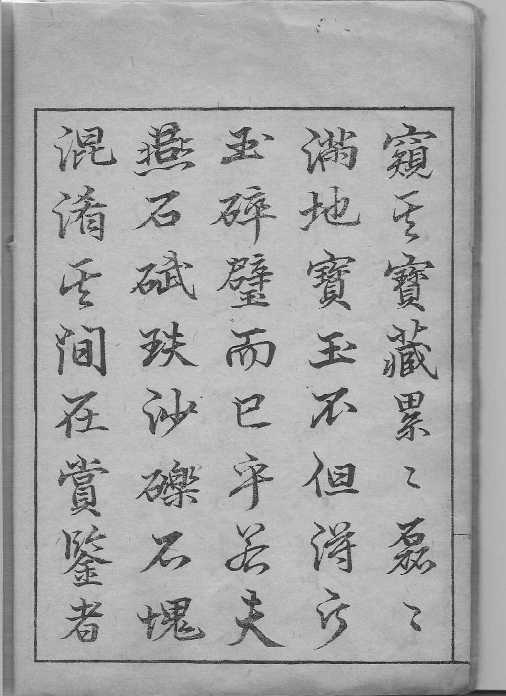 窺其寶藏累〻磊〻
滿地寶玉不但得片
玉碎璧而已乎若夫
燕石碔玞沙礫石塊
混淆其間在賞鑒者